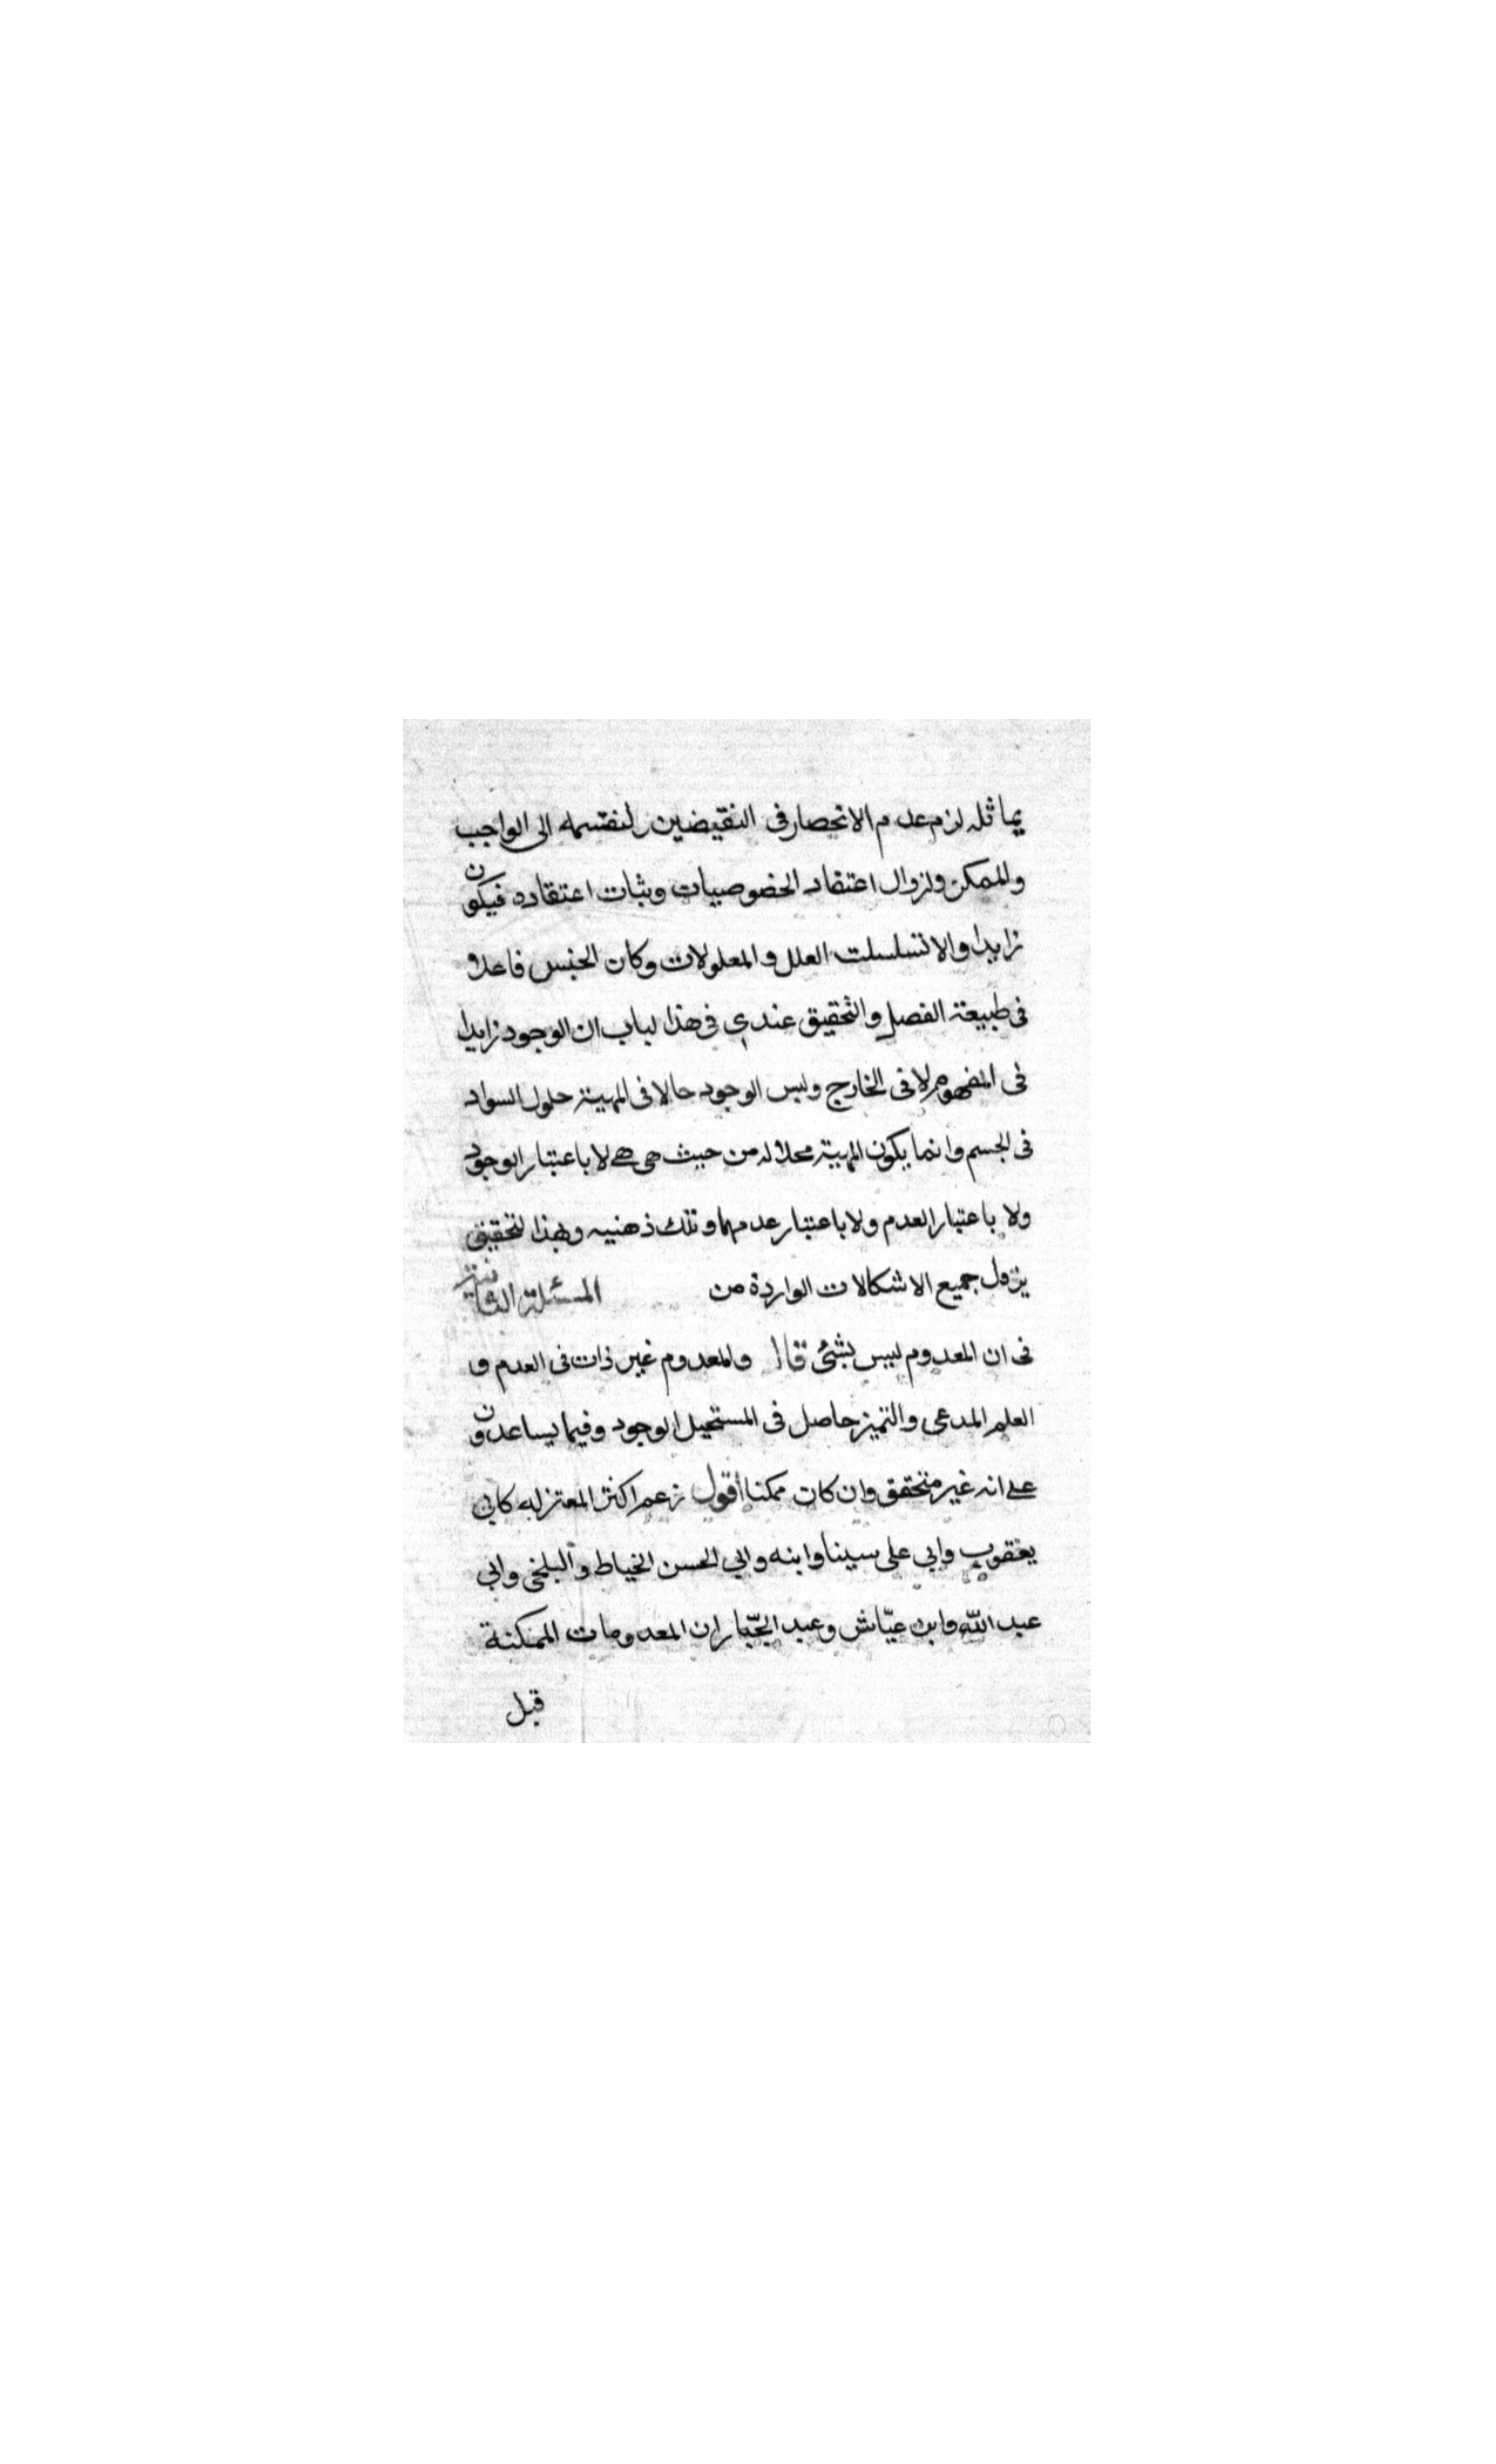 يماثله لزم عدم الانحصار فى النقيضين لنقسمه الى الواجب
والممكن ولزوال اعتقاد الخضوصيات وبثبات اعتقاده فيكون
زايدا والا تسلسلت العلل والمعلولات وكان الجنس فاعلا
فى طبيعة الفصل والتحقيق عندى فى هذا لباب ان الوجود زايدا
فى المفهوم لا فى الخارج وليس الوجود حالا فى المهية حلول السواد
فى الجسم وانما يكون المهية محلا له من حيث هى هى لا باعتبار الوجود
ولا باعتبار العدم ولا باعتبار عدمهما وتلك ذهنيه وبهذا لتحقيق
يزول جميع الاشكالات الواردة من المسئلة الثانية
فى ان المعدوم ليس بشئ قال والمعدوم غير ذات فى العدم و
العلم المدعى والتميز حاصل فى المستحيل الوجود وفيما يساعدون
على انه غير متحقق وان كان ممكنا أقول زعم اكثر المعتزله كابي
يعقوب وابي على سينا وابنه وابي الحسن الخياط والبلخى وابي
عبد اللّه وابن عيّاش وعبد الجبّار ان المعدومات الممكنة
قبل